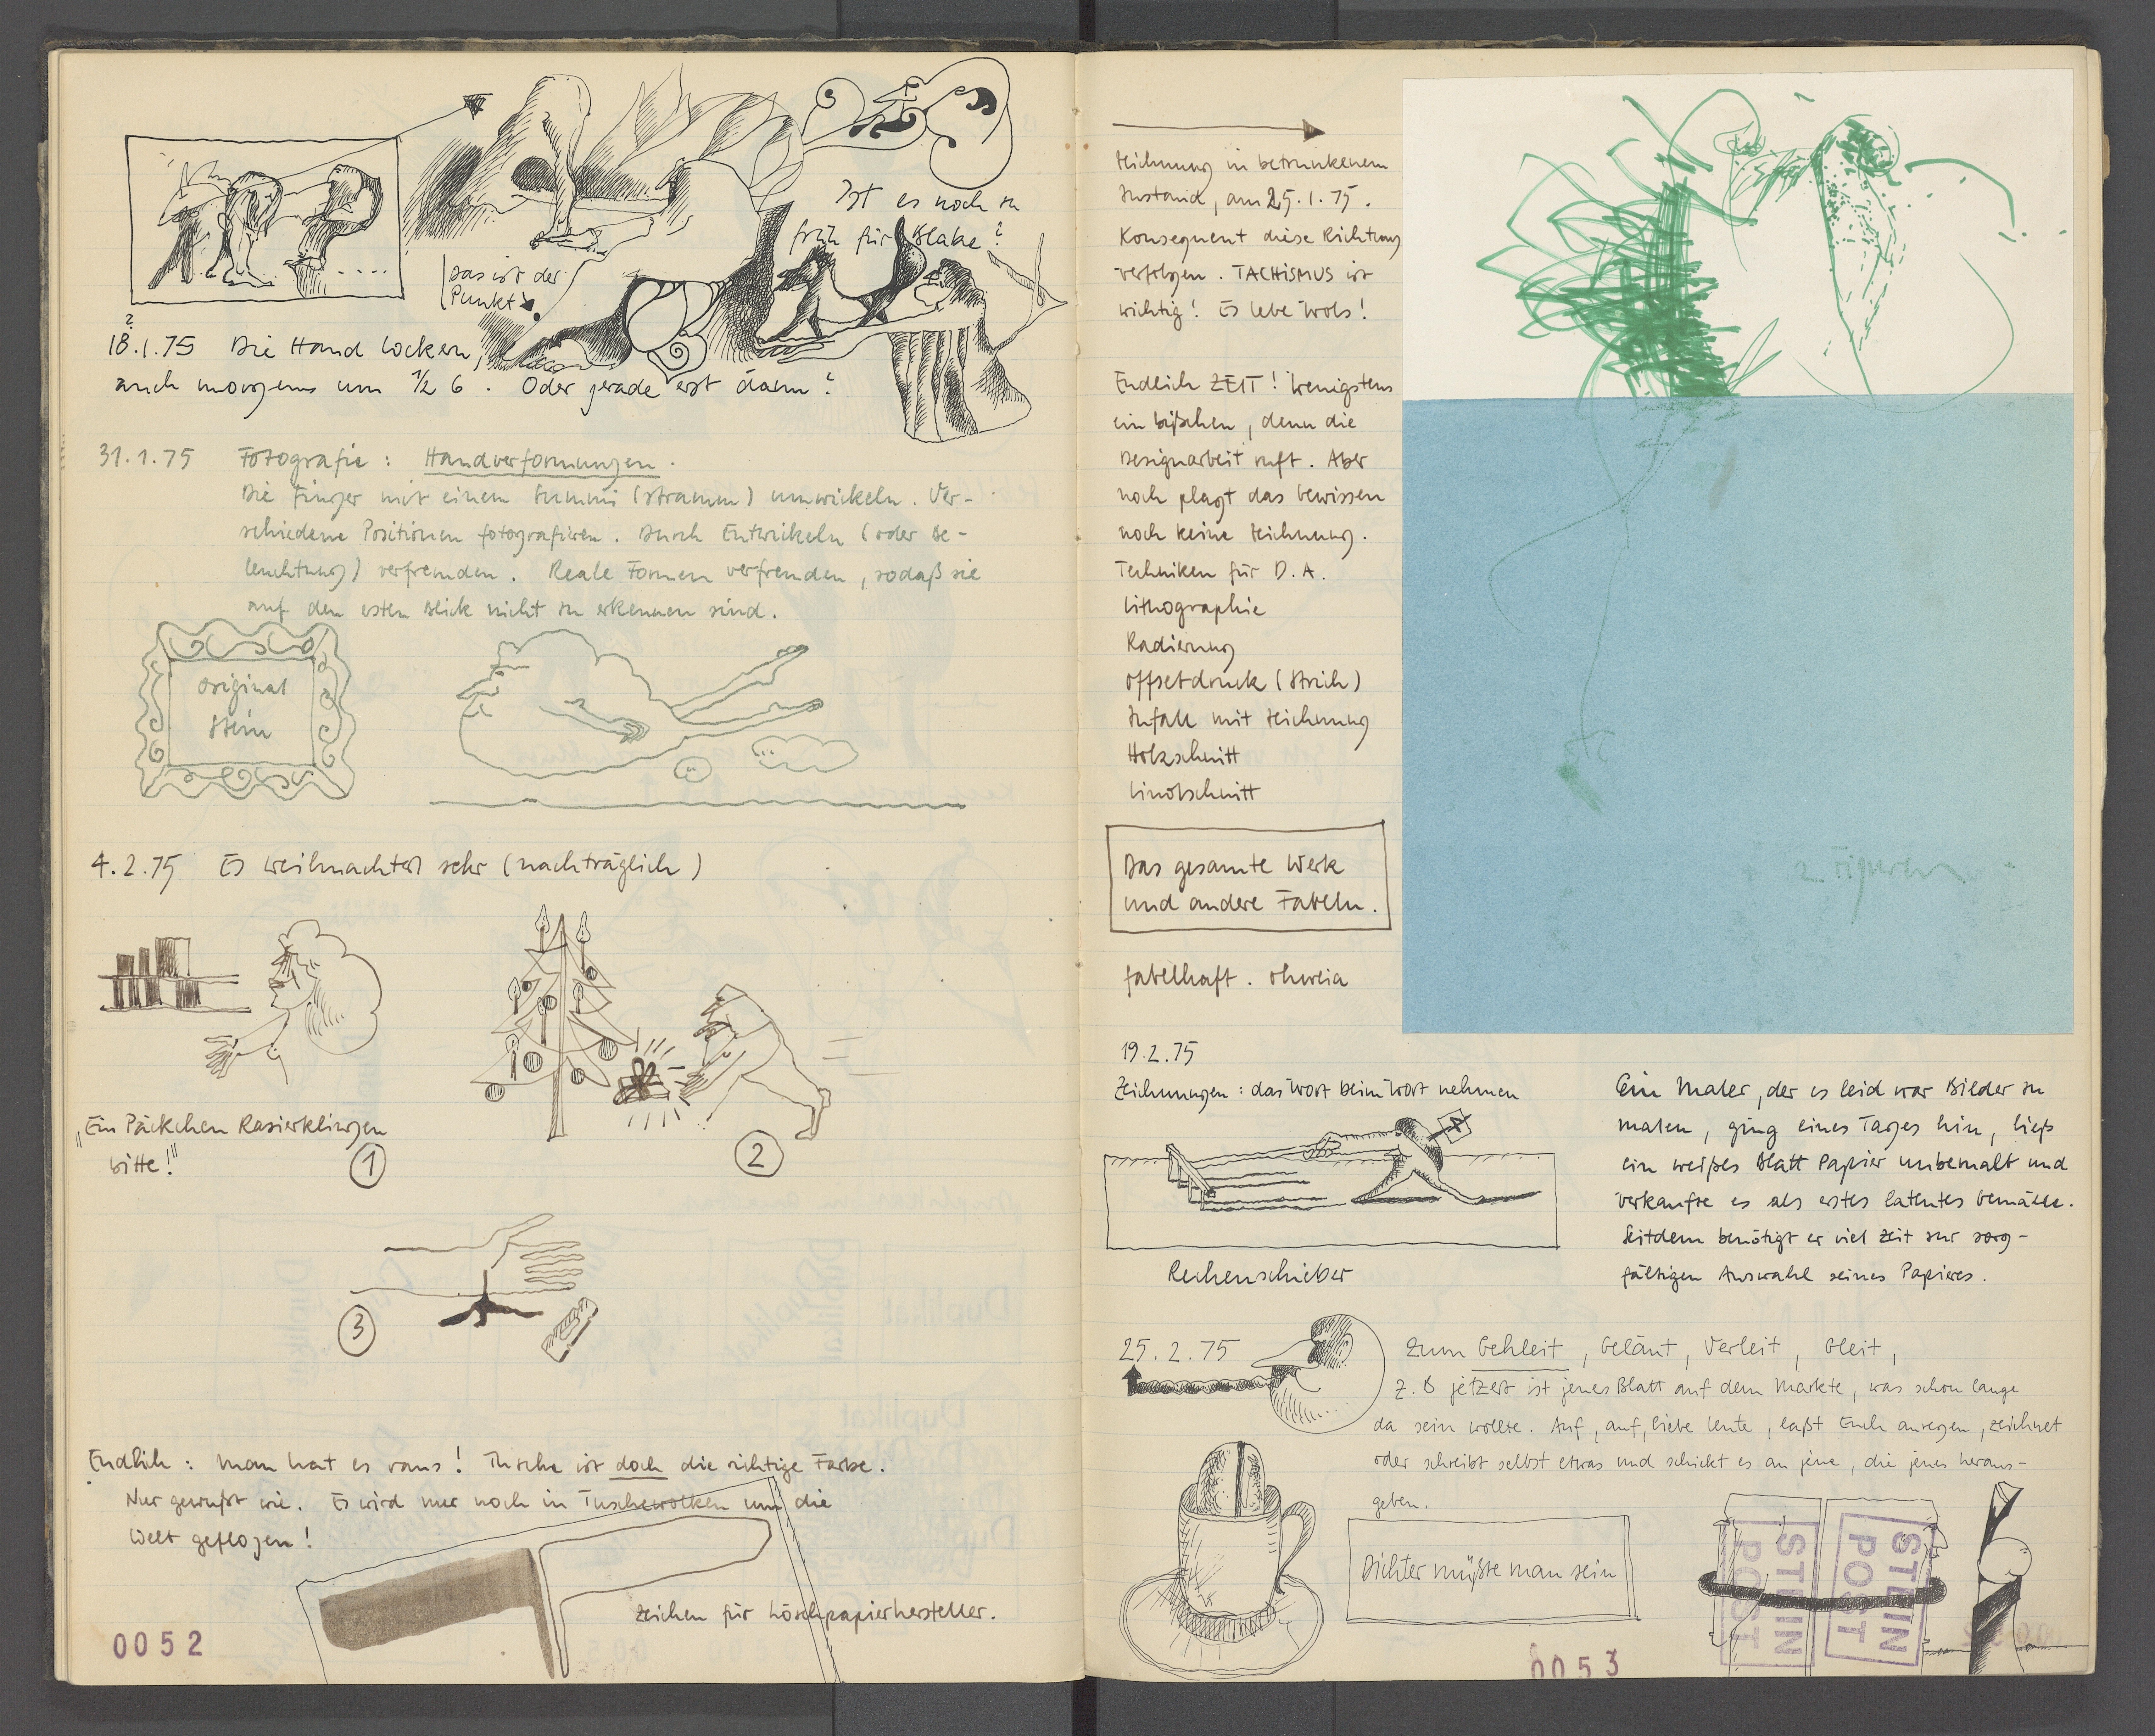 Ist es noch zu
früh für Blake?
Das ist der
Punkt
?
18.1.75 Die Hand lockern,
auch morgens um 1/2 6. Oder gerade erst dann?
31.1.75 Fotografie: Handverformungen.
Die Finger mit einem Gummi (stramm) umwickeln. Ver-
schiedene Positionen fotografieren. Durch Entwickeln (oder Be-
leuchtung) verfremden. Reale Formen verfremden, sodaß sie
auf den ersten Blick nicht zu erkennen sind.
original
Stein
4.2.75 Es weihnachtet sehr (nachträglich)
„Ein Päckchen Rasierklingen
bitte!"
1
2
3
Endlich: man hat es raus! Tusche ist doch die richtige Farbe.
Nur gewußt wie. Es wird nur noch in Tuschewolken um die
Welt geflogen!
Zeichen für Löschpapierhersteller.
0052
Zeichnung in betrunkenem
Zustand, am 25.1.75.
Konsequent diese Richtung
verfolgen. TACHISMUS ist
wichtig! Es lebe Wols!
Endlich ZEIT! Wenigstens
ein bißchen, denn die
Designarbeit ruft. Aber
noch plagt das Gewissen
noch keine Zeichnung.
Techniken für D.A.
Lithographie
Radierung
Offsetdruck (Strich)
Zufall mit Zeichnung
Holzschnitt
Linolschnitt
Das gesamte Werk
und andere Fabeln.
fabelhaft. ohweia
2 Figuren
19.2.75
Zeichnungen: das Wort beim Wort nehmen
Rechenschieber
Ein Maler, der es leid war Bilder zu
malen, ging eines Tages hin, ließ
ein weißes Blatt Papier unbemalt und
verkaufte es als erstes latentes Gemälde.
Seitdem benötigt er viel Zeit zur sorg-
fältigen Auswahl seines Papieres.
25.2.75 Zum Gehleit, Geläut, Verleit, Gleit,
z.B jetzert ist jenes Blatt auf dem Markte, was schon lange
da sein wollte. Auf, auf, liebe Leute, laßt Euch anregen, zeichnet
oder schreibt selbst etwas und schickt es an jene, die jenes heraus-
geben.
Dichter müßte man sein
STEIN
POST
STEIN
POST
0053